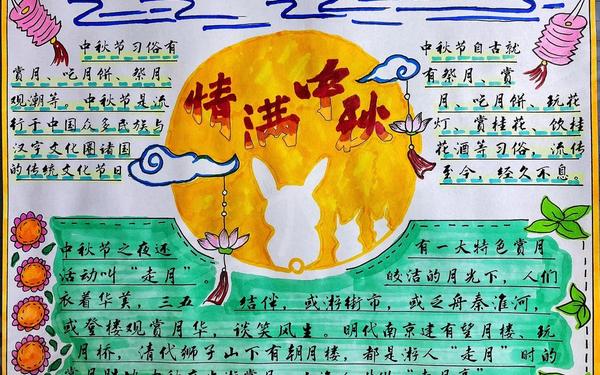 情满中秋
中秋节习俗有
赏月、吃月饼、祭月、
观潮等。中秋节是流
行于中国众多民族与
汉字文化圈诸国
的传统文化节日
中秋节自古就
有祭月、赏
月、吃月饼、玩花
灯、赏桂花、饮桂
花酒等习俗，流传
至今，经久不息
中秋节之夜还
有一大特色赏月
活动叫“走月”。
皎洁的月光下，人们
衣着华美，三五
结伴，或游街市，或泛舟秦淮河，
或登楼观赏月华，谈笑风生。明代南京建有望月楼、玩
月桥，清代狮子山下有朝月楼，都是游人“走月”时的